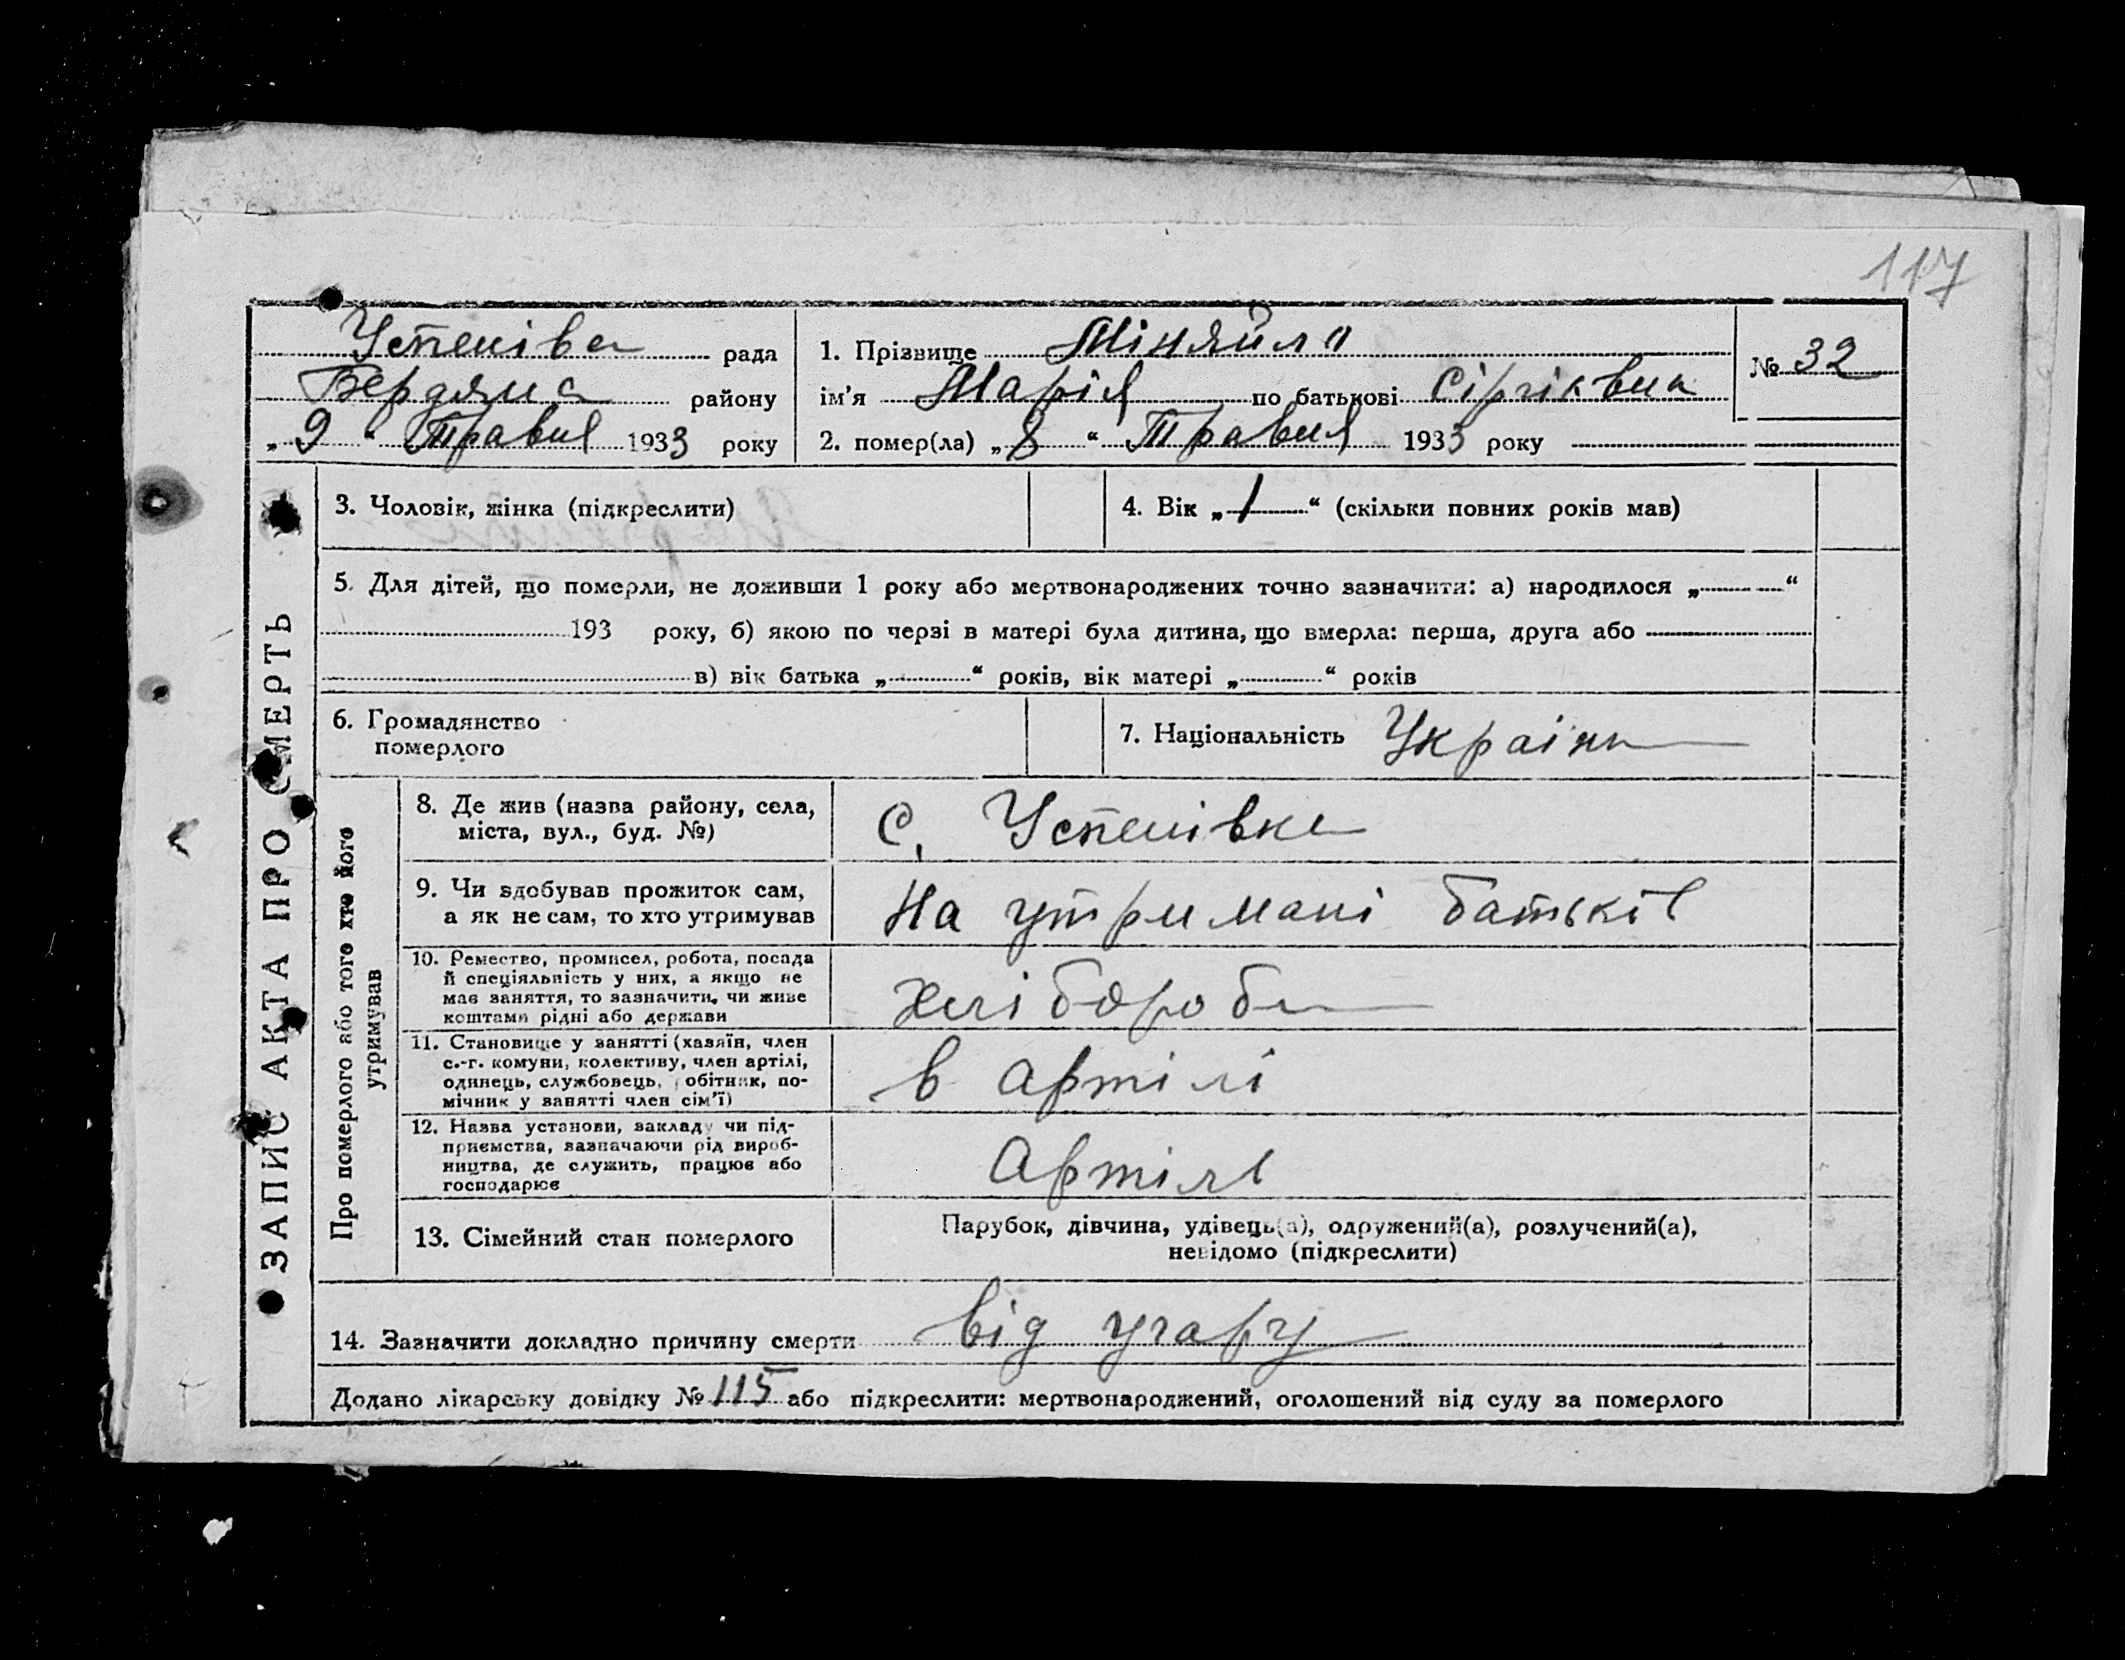 117
Успеніва рада
Бердянс району
„ 9 “ Травня 1933 року
1. Прізвище Міняйло
ім'я Марія по батькові Сіргіївна
2. помер(ла) „ 8 “ Травня 1933 року
№ 32
ЗАПИС АКТА ПРО СМЕРТЬ
3. Чоловік, жінка (підкреслити)
4. Вік „ 1 “ (скільки повних років мав)
5. Для дітей, що померли, не доживши 1 року або мертвонароджених точно зазначити: а) народилося „ “
193 року, б) якою по черзі в матері була дитина, що вмерла: перша, друга або
в) вік батька „ “ років, вік матері „ “ років
6. Громадянство
померлого
7. Національність Україн
Про померлого або того хто його
утримував
8. Де жив (назва району, села,
міста, вул., буд. №)
с. Успенівка
9. Чи здобував прожиток сам,
а як не сам, то хто утримував
На утримані батьків
10. Ремество, промисел, робота, посада
й спеціяльність у них, а якщо не
мав заняття, то зазначити, чи живе
коштами рідні або держави
Хлібороб
11. Становище у занятті (хазяїн, член
с.-г. комуни, колективу, член артілі,
одинець, службовець, робітник, по-
мічник у занятті член сім'ї)
в артілі
12. Назва установи, закладу чи під-
приємства, зазначаючи рід вироб-
ництва, де служить, працює або
господарює
Артілі
13. Сімейний стан померлого
Парубок, дівчина, удівець(а), одружений(а), розлучений(а),
невідомо (підкреслити)
14. Зазначити докладно причину смерти від угару
Додано лікарську довідку № 115 або підкреслити: мертвонароджений, оголошений від суду за померлого